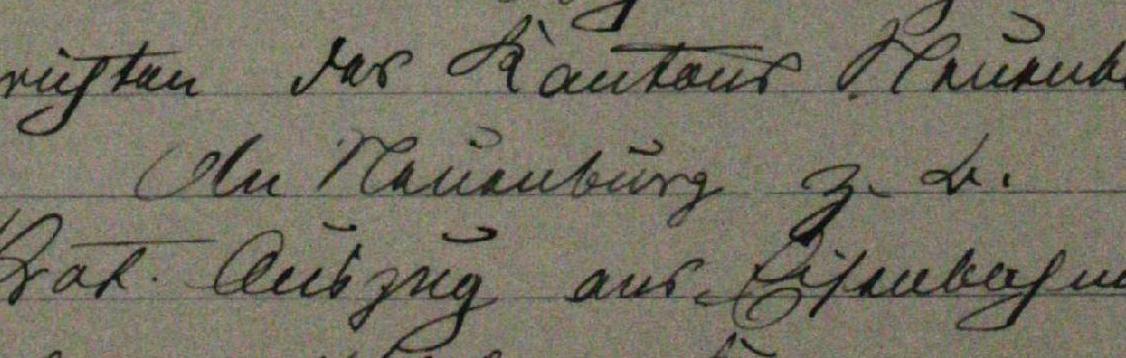 richten des Kantons Neuenb
An Neuenburg z. B.
Prot. Auszug aus Eisenbahn